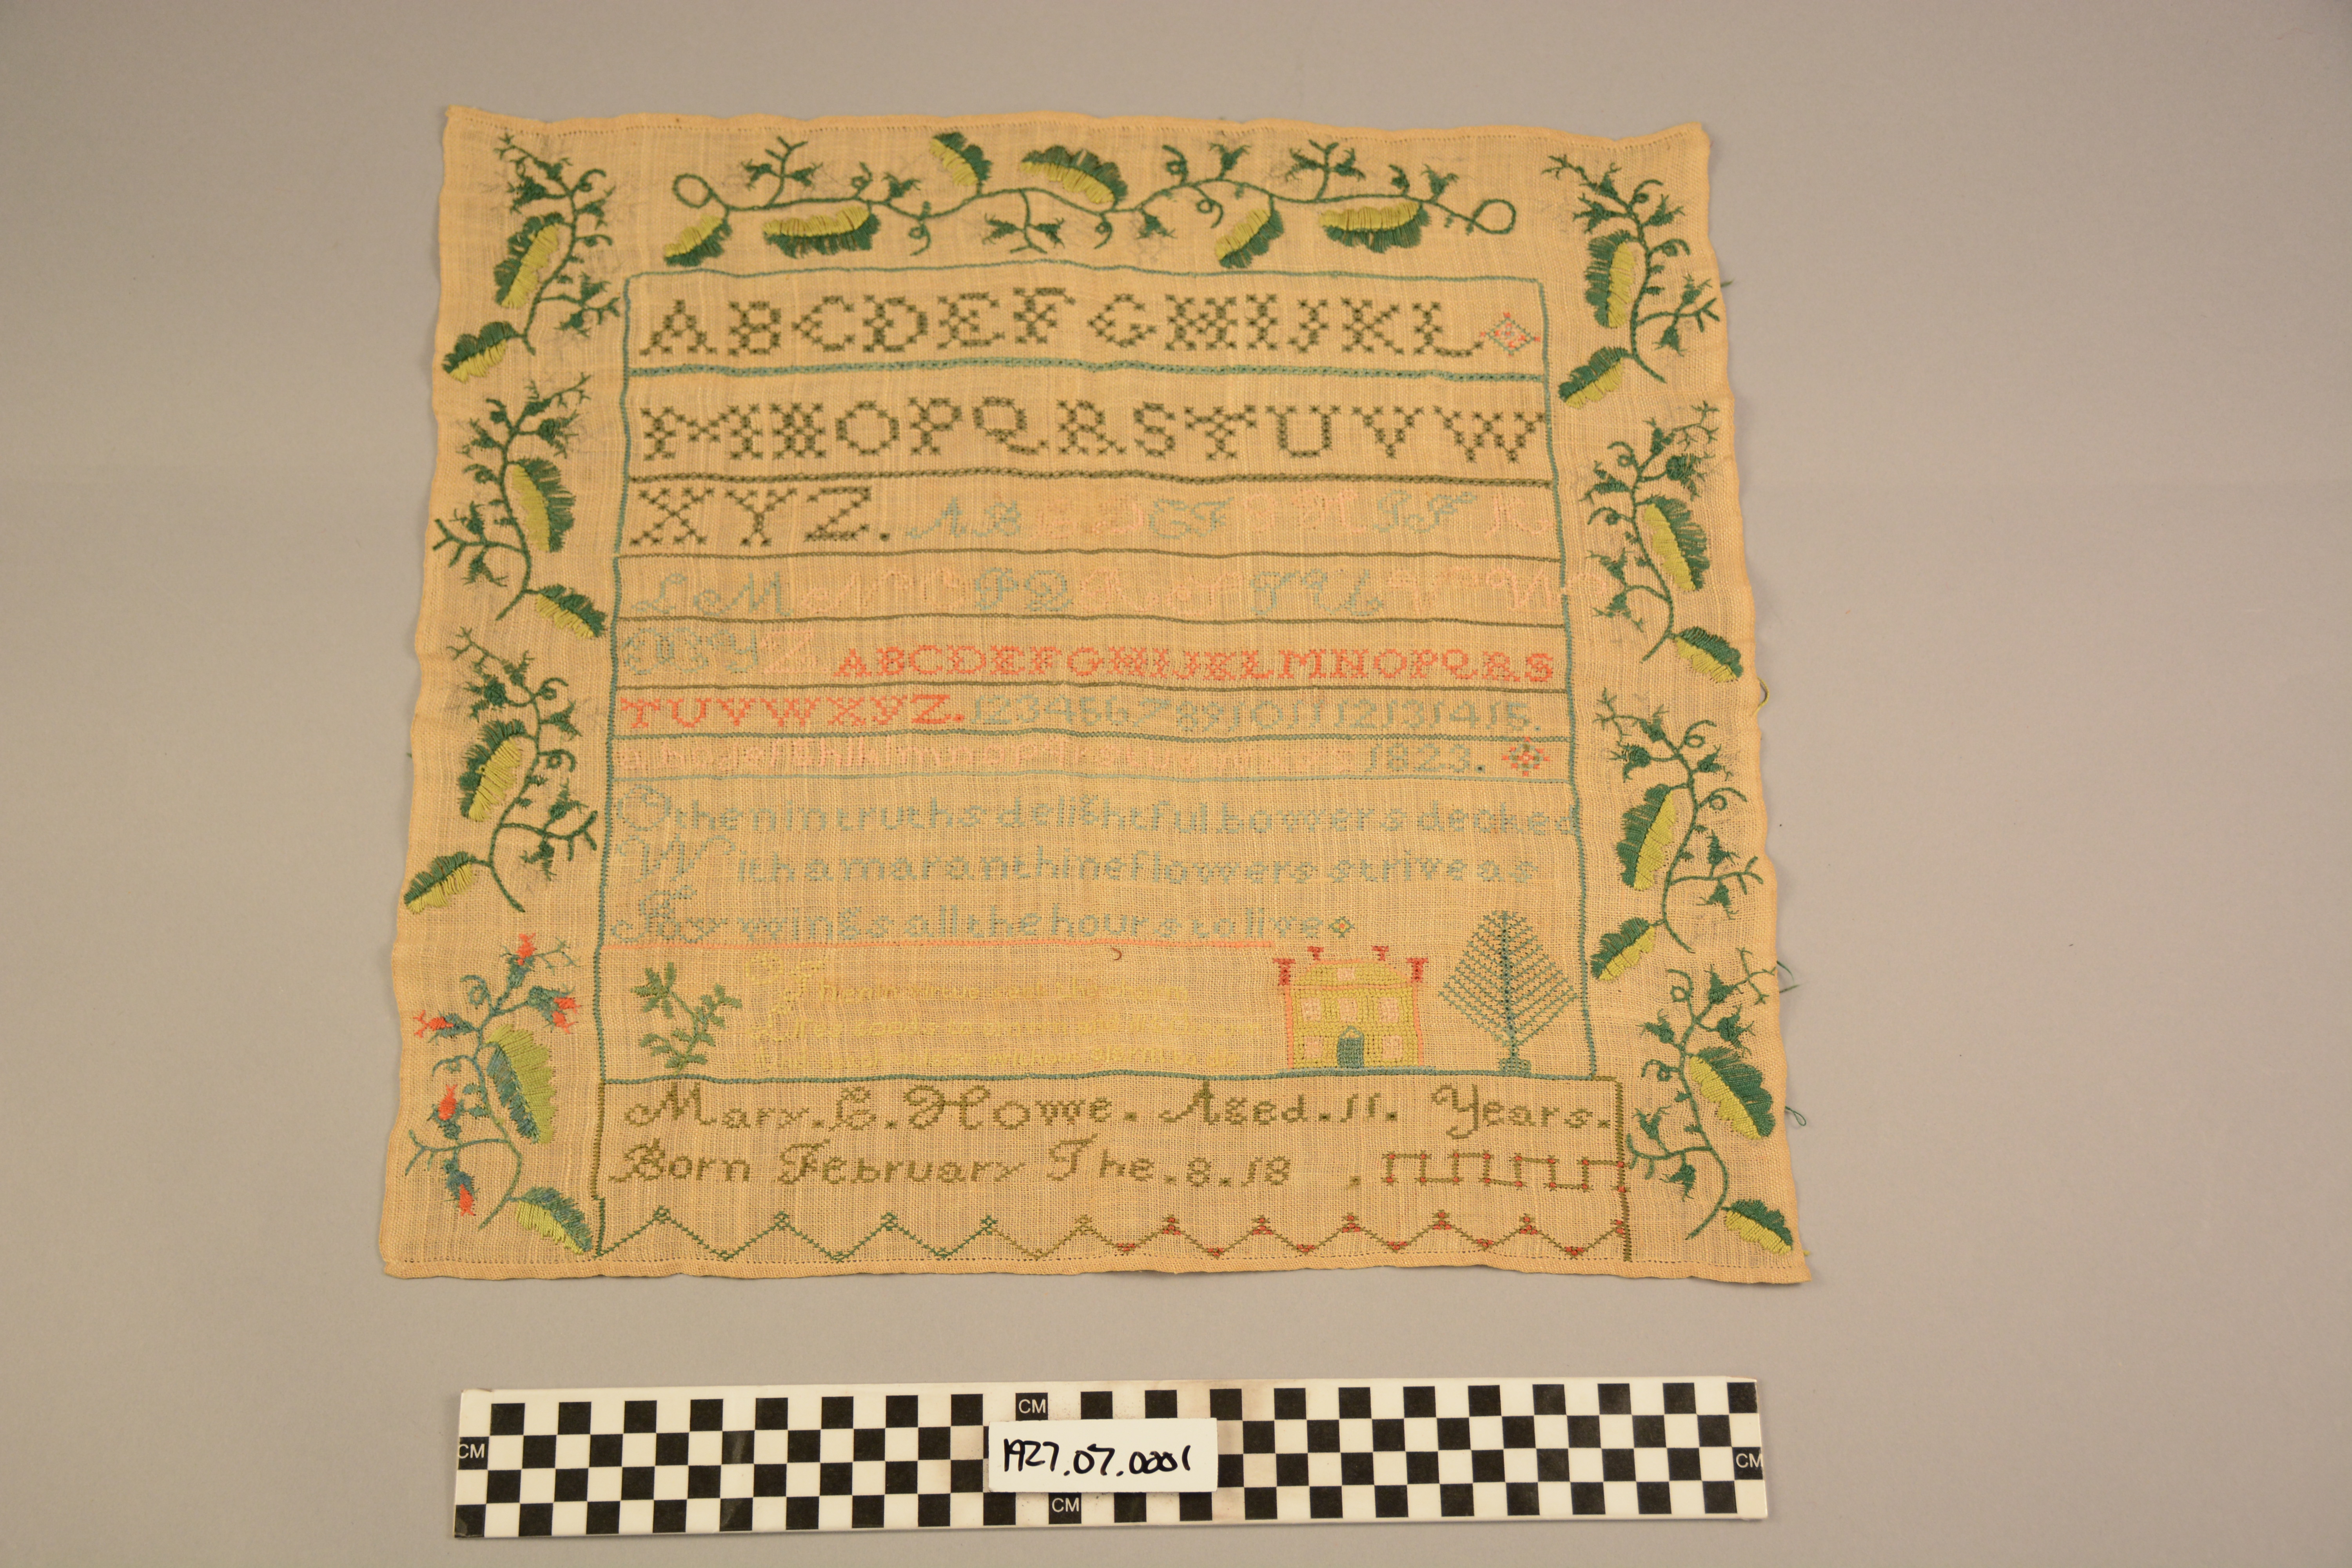 ABCDEFGHIJKL
MNOPQRSTUVW
XYZ. ABCDEFGHIJK
LMNOPQRSTUVW
XYZ ABCDEFGHIJKLMNOPQRS
TUVWXYZ. 123456789101112131415.
1823.
O then in truths delightful bowers decked
With amaranthine flowers strive as
By wings all the hours to live
Then in virtue
Mary. E. Howe. Aged. 11. Years.
Born February The. 8. 18 .
CM
CM
1927.07.0001
CM
CM